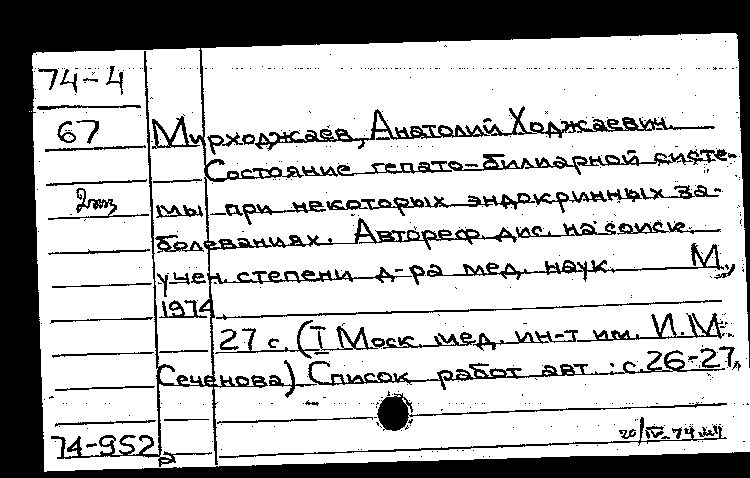 74-4
67 Мирходжаев, Анатолий Ходжаевич.
Состояние гепато-билиарной систе-
2 экз мы при некоторых эндокринных за-
болеваниях. Автореф. дис. на соиск.
учен. степени д-ра мед. наук. М.,
1974.
27 с. (I Моск. мед. ин-т им. И.М.
Сеченова) Список работ авт.: с. 26-27.
74-952 20/IV-74